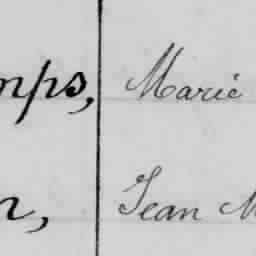 mps, Marie
n, Jean M